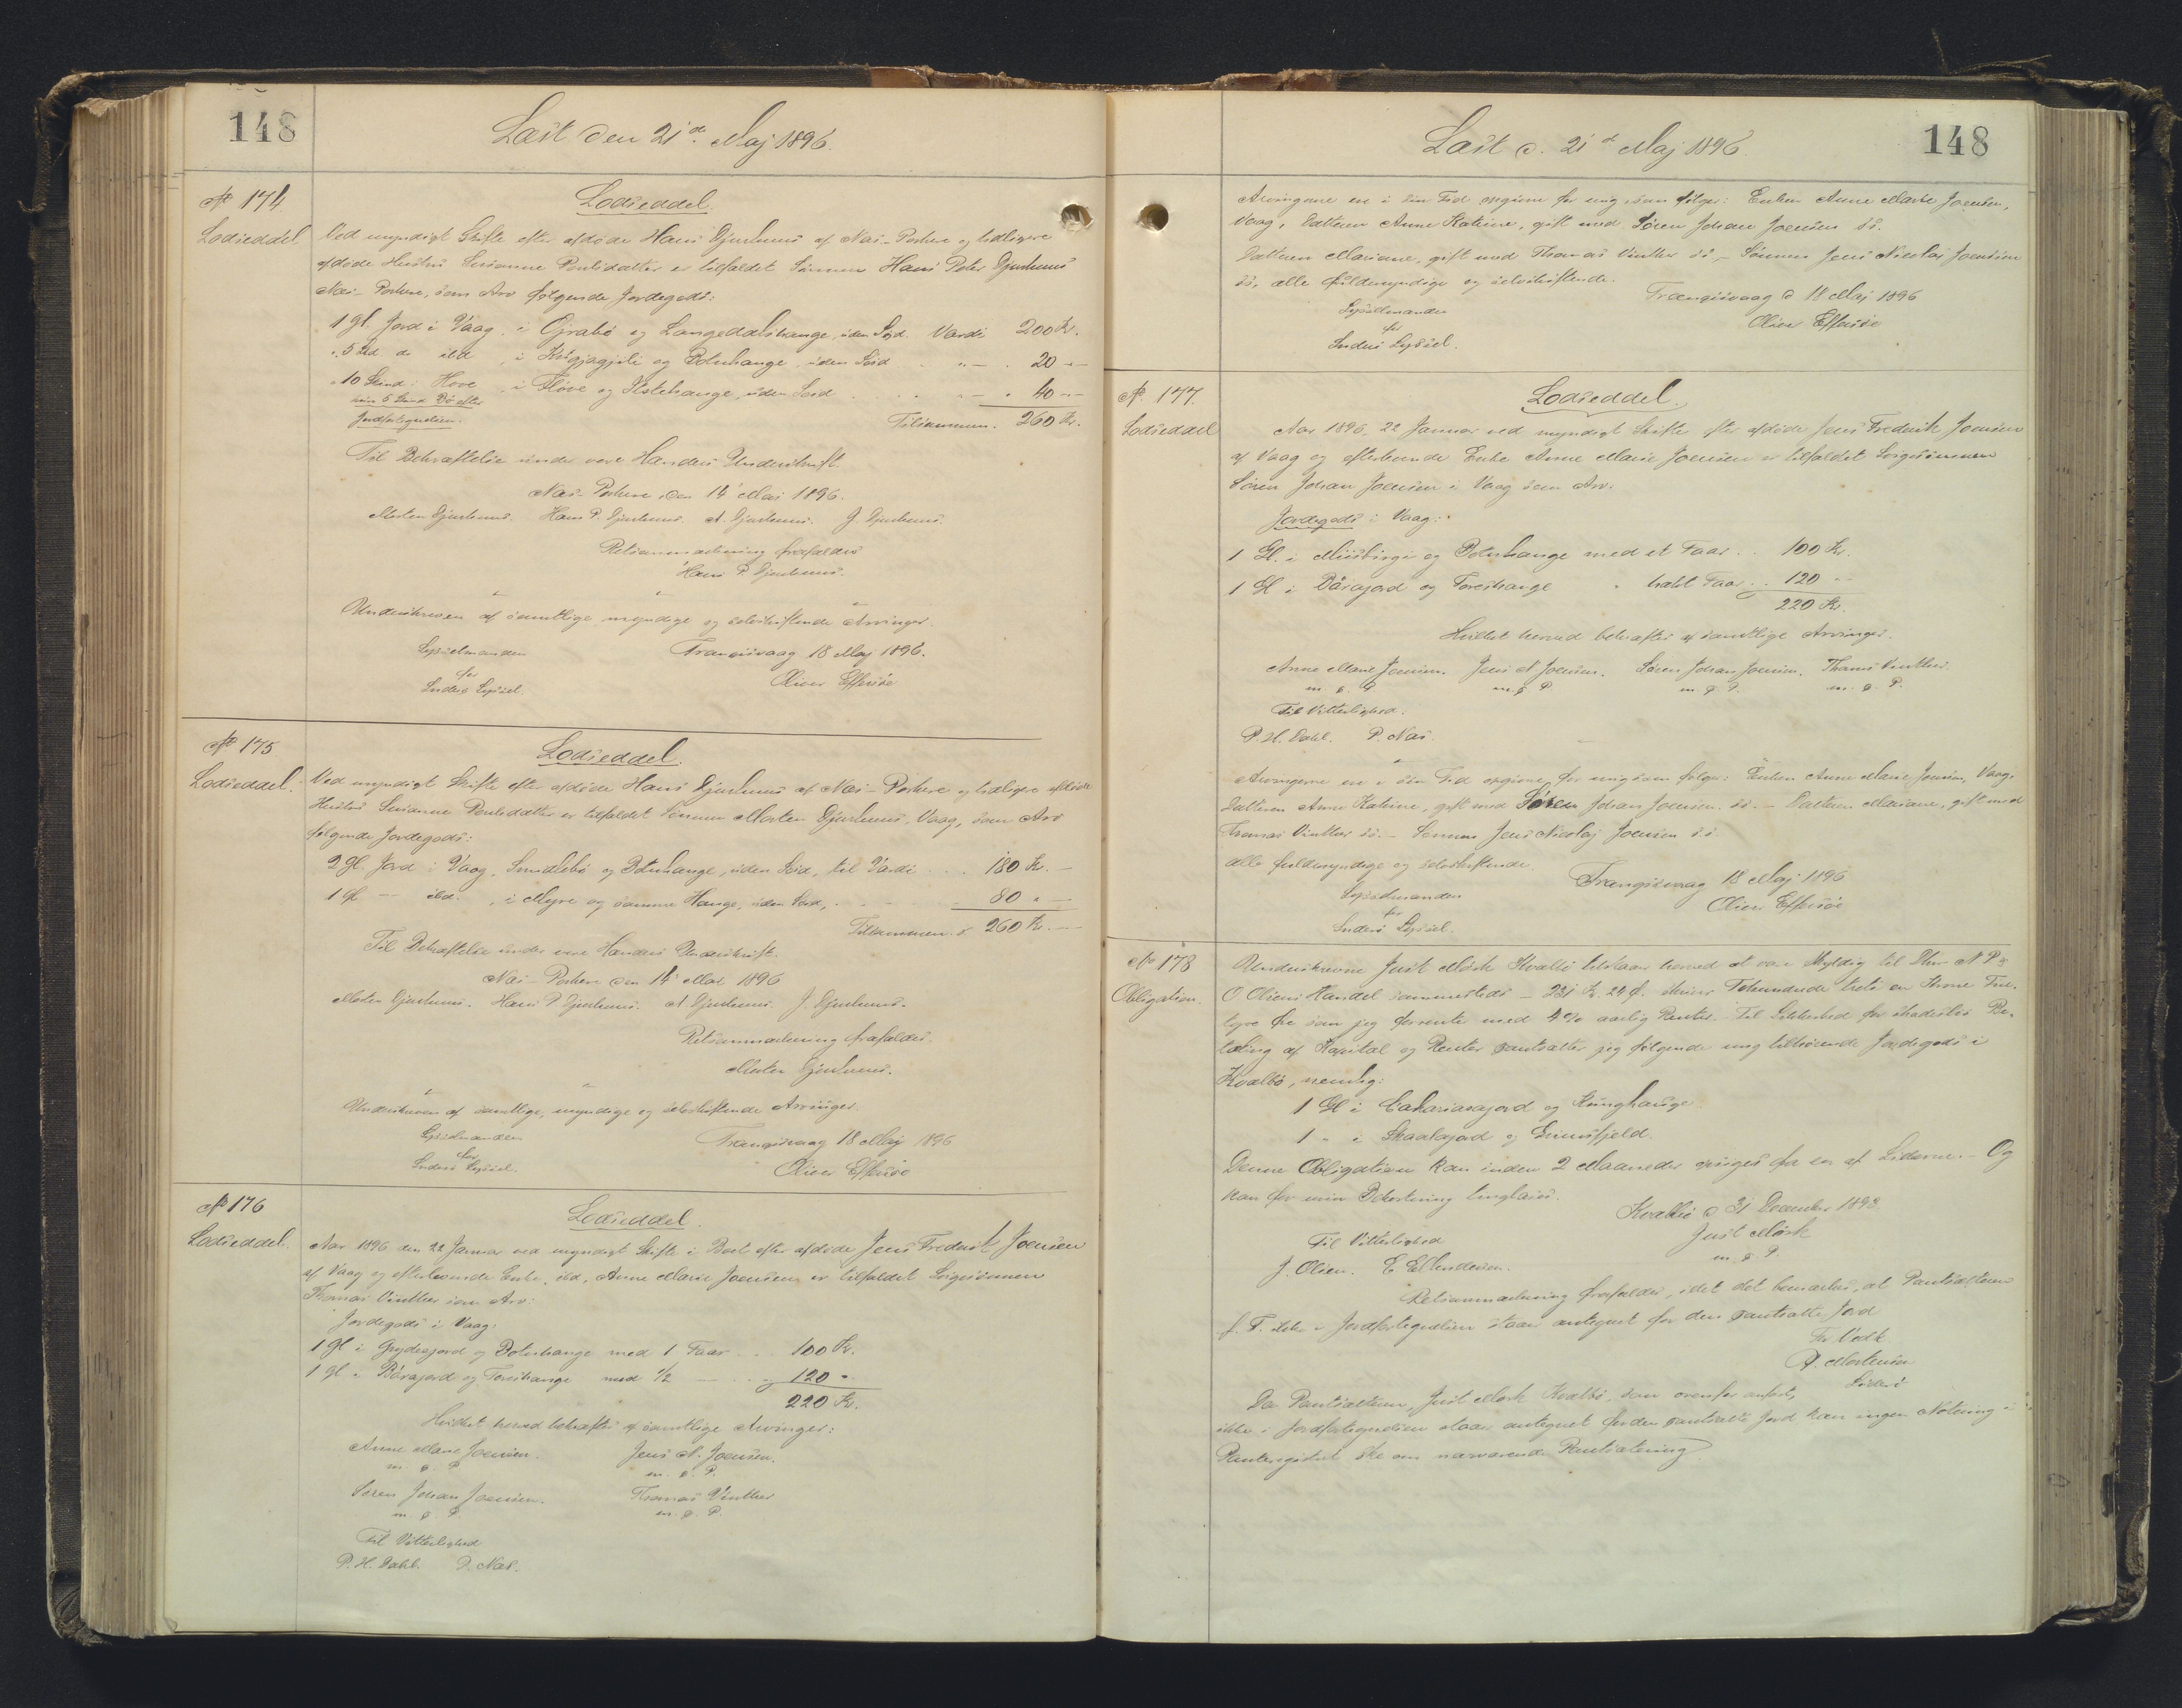 148
Læst den 21de Maj 1896.
No 174.
Lodseddel
Lodseddel.
Ved myndigt Skifte efter afdøde Hans Djurhuus af Næs-Porkere og tidligere
afdøde Hustru Susanne Poulsdatter er tilfaldet Sønnen Hans Peter Djurhuus
Næs-Porkere, som Arv følgende Jordegods:
1 Gl. Jord i Vaag, i Grabø og Langedalshauge, uden Sød. Værdi 200 Kr.
5 Skd. do ibd , i og Botnhauge, uden Sød 20
10 Skind i Hove , i Fløve og hauge, uden Sød 40
kun 5 Skind Bø efter
Jordfortegnelsen.
Tilsammen. 260 Kr.
Til Bekræftelse under vore Hænders Underskrift.
Næs-Porkere, den 14 Mai 1896.
Morten Djurhuus. Hans P. Djurhuus. A. Djurhuus. J. Djurhuus.
Retsanmærkning frafaldes
Hans P. Djurhuus.
Underskreven af samtlige myndige og selvskiftende Arvinger.
Sysselmanden
for
Suderø Syssel.
Trangisvaag 18 Maj 1896.
Oliver Effersøe
No 175
Lodseddel.
Lodseddel.
Ved myndigt Skifte efter afdøde Hans Djurhuus af Næs-Porkere og tidligere afdøde
Hustru Susanne Poulsdatter er tilfaldet Sønnen Morten Djurhuus, Vaag, som Arv
følgende Jordegods:
2 Gl. Jord i Vaag, og Botnhauge, uden Sød, til Værdi 180 Kr.
1 Gl. — ibd. , i Myre og samme Hauge, uden Sød, 80
Tilsammen 260 Kr.
Til Bekræftelse under vore Hænders Underskrift.
Næs-Porkere den 14 Mai 1896
Morten Djurhuus. Hans P. Djurhuus. A Djurhuus. J. Djurhuus.
Retsanmærkning frafaldes.
Morten Djurhuus.
Underskreven af samtlige, myndige og selvskiftende Arvinger
Sysselmanden
for
Suderø Syssel.
Trangisvaag 18 Maj 1896
Oliver Effersøe
No 176
Lodseddel.
Lodseddel.
Aar 1896 den 22 Januar ved myndigt Skifte i Boet efter afdøde Jens Frederik Joensen
af Vaag og efterlevende Enke, ibd, Anne Marie Joensen er tilfaldet Svigersønnen
Thomas Vinther som Arv:
Jordegods i Vaag:
1 Gl i Grydesjord og Botnhauge med 1 Faar 100 Kr.
1 Gl i Bårajord og Toreshauge med 1/2 — 120
220 Kr.
Hvilket herved bekræftes af samtlige Arvinger:
Anne Marie Joensen. Jens N. Joensen.
m. f. P. m. f. P.
Søren Johan Joensen. Thomas Vinther
m. f. P. m. f. P.
Til Vitterlighed
P. H. Dahl. P. Næs.
Læst d. 21d Maj 1896
148
Arvingerne ere i sin Tid opgivne for mig, som følger: Enken Anne Marie Joensen,
Vaag, Datteren Anne Katrine, gift med Søren Johan Joensen ss.
Datteren Mariane, gift med Thomas Vinther ss, – Sønnen Jens Nicolaj Joensen
ss, alle fuldmyndige og selvskiftende.
Trangisvaag d 18 Maj 1896
Sysselmanden
for
Suderø Syssel.
Oliver Effersøe
No. 177.
Lodseddel
Lodseddel.
Aar 1896, 22 Januar ved myndigt Skifte efter afdøde Jens Frederik Joensen
af Vaag og efterlevende Enke Anne Marie Joensen er tilfaldet Svigersønnen
Søren Johan Joensen i Vaag som Arv:
Jordegods i Vaag:
1 Gl. i og Botnhauge med et Faar 100 Kr.
1 Gl i Bårajord og Toreshauge " halvt Faar 120
220 Kr.
Hvilket herved bekræftes af samtlige Arvinger.
Anne Marie Joensen. Jens N. Joensen. Søren Johan Joensen. Thomas Vinther
m. f. P. m. f. P. m. f. P. m. f. P.
Til Vitterlighed:
P. H. Dahl. P. Næs.
Arvingerne ere i sin Tid opgivne for mig som følger: Enken Anne Marie Joensen, Vaag,
Datteren Anne Katrine, gift med Søren Johan Joensen. ss. – Datteren Mariane, gift med
Thomas Vinther ss. – Sønnen Jens Nicolaj Joensen ss.
alle fuldmyndige og selvskiftende.
Trangisvaag 18 Maj 1896
Sysselmanden
for
Suderø Syssel.
Oliver Effersøe
No 178
Obligation.
Underskrevne Just Mørk Kvalbø tilstaar herved at være skyldig til Dhrr N P &
O Olsens Handel sammesteds – 231 Kr. 24 Ø. skriver Tohundrede treti en Krone Fire
tyve Øre som jeg forrenter med 4% aarlig Renter. Til Sikkerhed for skadesløs Be-
taling af Kapital og Renter pantsætter jeg følgende mig tilhørende Jordegods i
Kvalbø, nemlig:
1 Gl i Cakariasajord og Kunghauge
1 " i Skaalajord og
Denne Obligation kan inden 2 Maaneder opsiges fra en af Siderne. – Og
kan for min Bekostning tinglæses.
Kvalbø d 31 December 1893
Just Mørk
m. f. P.
Til Vitterlighed
J. Olsen. E Ellendersen.
Retsanmærkning frafaldes, idet det bemærkes, at Pantsætteren
f. T. ikke i Jordfortegnelsen staar antegnet for den pantsatte Jord
A. Mortensen
Suderø
Da Pantsætteren, Just Mørk Kvalbø, som ovenfor anført,
ikke i Jordfortegnelsen staar antegnet for den pantsatte Jord kan ingen Notering i
Panteregistret ske om nærværende Pantsætning